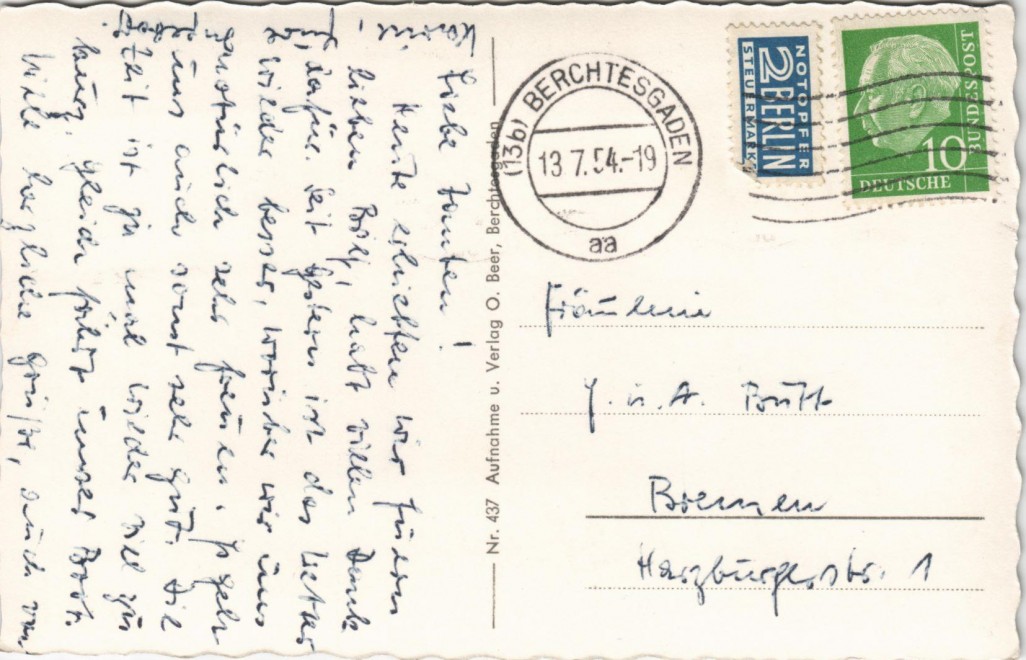 Liebe Tanten!
Heute erhielten wir Euern
lieben Brief, habt vielen Dank
dafür. Seit gestern ist das Wetter
wieder besser, worüber wir uns
natürlich sehr freuen. Es geht
uns auch sonst sehr gut. Die
Zeit ist ja mal wieder viel zu
kurz. Gleich fährt unser Boot.
Viele herzliche Grüße, auch von
Nr. 437 Aufnahme u. Verlag O. Beer, Berchtesgaden
(13b) BERCHTESGADEN
13.7.54.-19
aa
NOTOPFER
2 BERLIN
STEUERMARKE
BUNDESPOST
10
DEUTSCHE
Fräulein
u. A. Bütt
Bremen
Harzburgerstr. 1